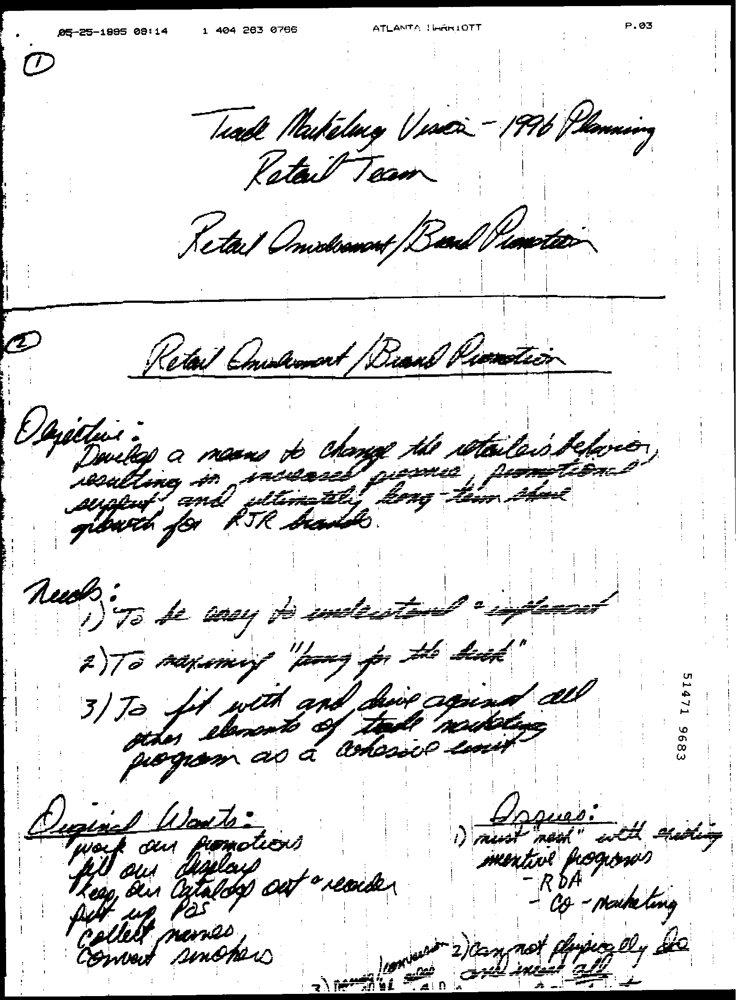 05-25-1995 09:14 1 404 263 0766 ATLANTA MARRIOTT P.03
1
Trade Marketing Vision - 1996 Planning
Retail Team
Retail Involvement / Brand Promotion
2
Retail Involvement / Brand Promotion
Objective:
Develop a means to change the retailer's behavior,
resulting in increased presence, promotional
support and ultimately long-term share
growth for RJR brands.
Needs:
1) To be easy to understand & implement
2) To maximize "bang for the buck"
3) To fit with and drive against all
other elements of trade marketing
program as a cohesive unit
Original Wants:
work our promotions
fill our displays
keep our catalogs out & reorder
put up POS
collect names
Convert smokers
Issues:
1) must "mesh" with existing
incentive programs
- RDA
- Co-marketing
2) can not physically do
and incent all
3) conversion
51471 9683